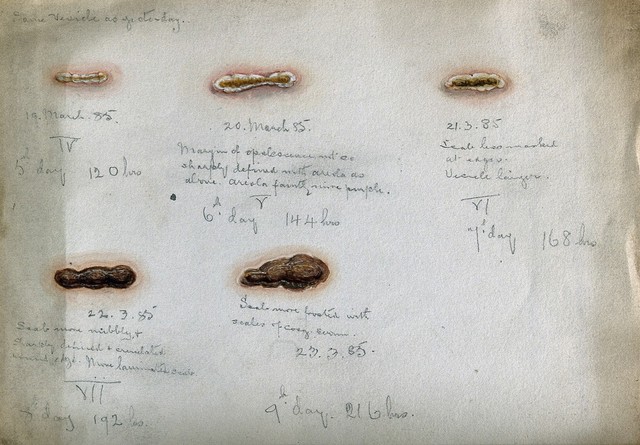 Same Vesicle as yesterday.
19. March. 85.
IV
5th day 120 hrs
20. March 85.
Margin of opalescence not so
sharply defined with areola as
above. areola faintly more purple.
V
6th day 144 hrs
21.3.85
Scab less marked
at edges.
Vesicle larger.
VI
7th day 168 hrs
22. 3. 85
Scab more nibbly, &
sharply defined &
edge. More laminated scab.
VII
day 192 hrs.
Scab more frosted with
scales of coag. serum.
23.3.85.
9th day. 216 hrs.